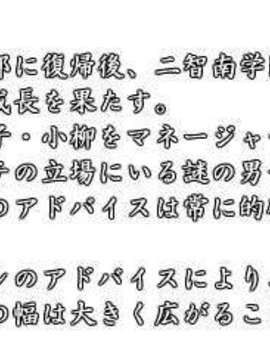 部に復帰後、二智南学
成長を果たす。
子・小柳をマネージャ
チの立場にいる謎の男
のアドバイスは常に的
ンのアドバイスにより
の幅は大きく広がるこ